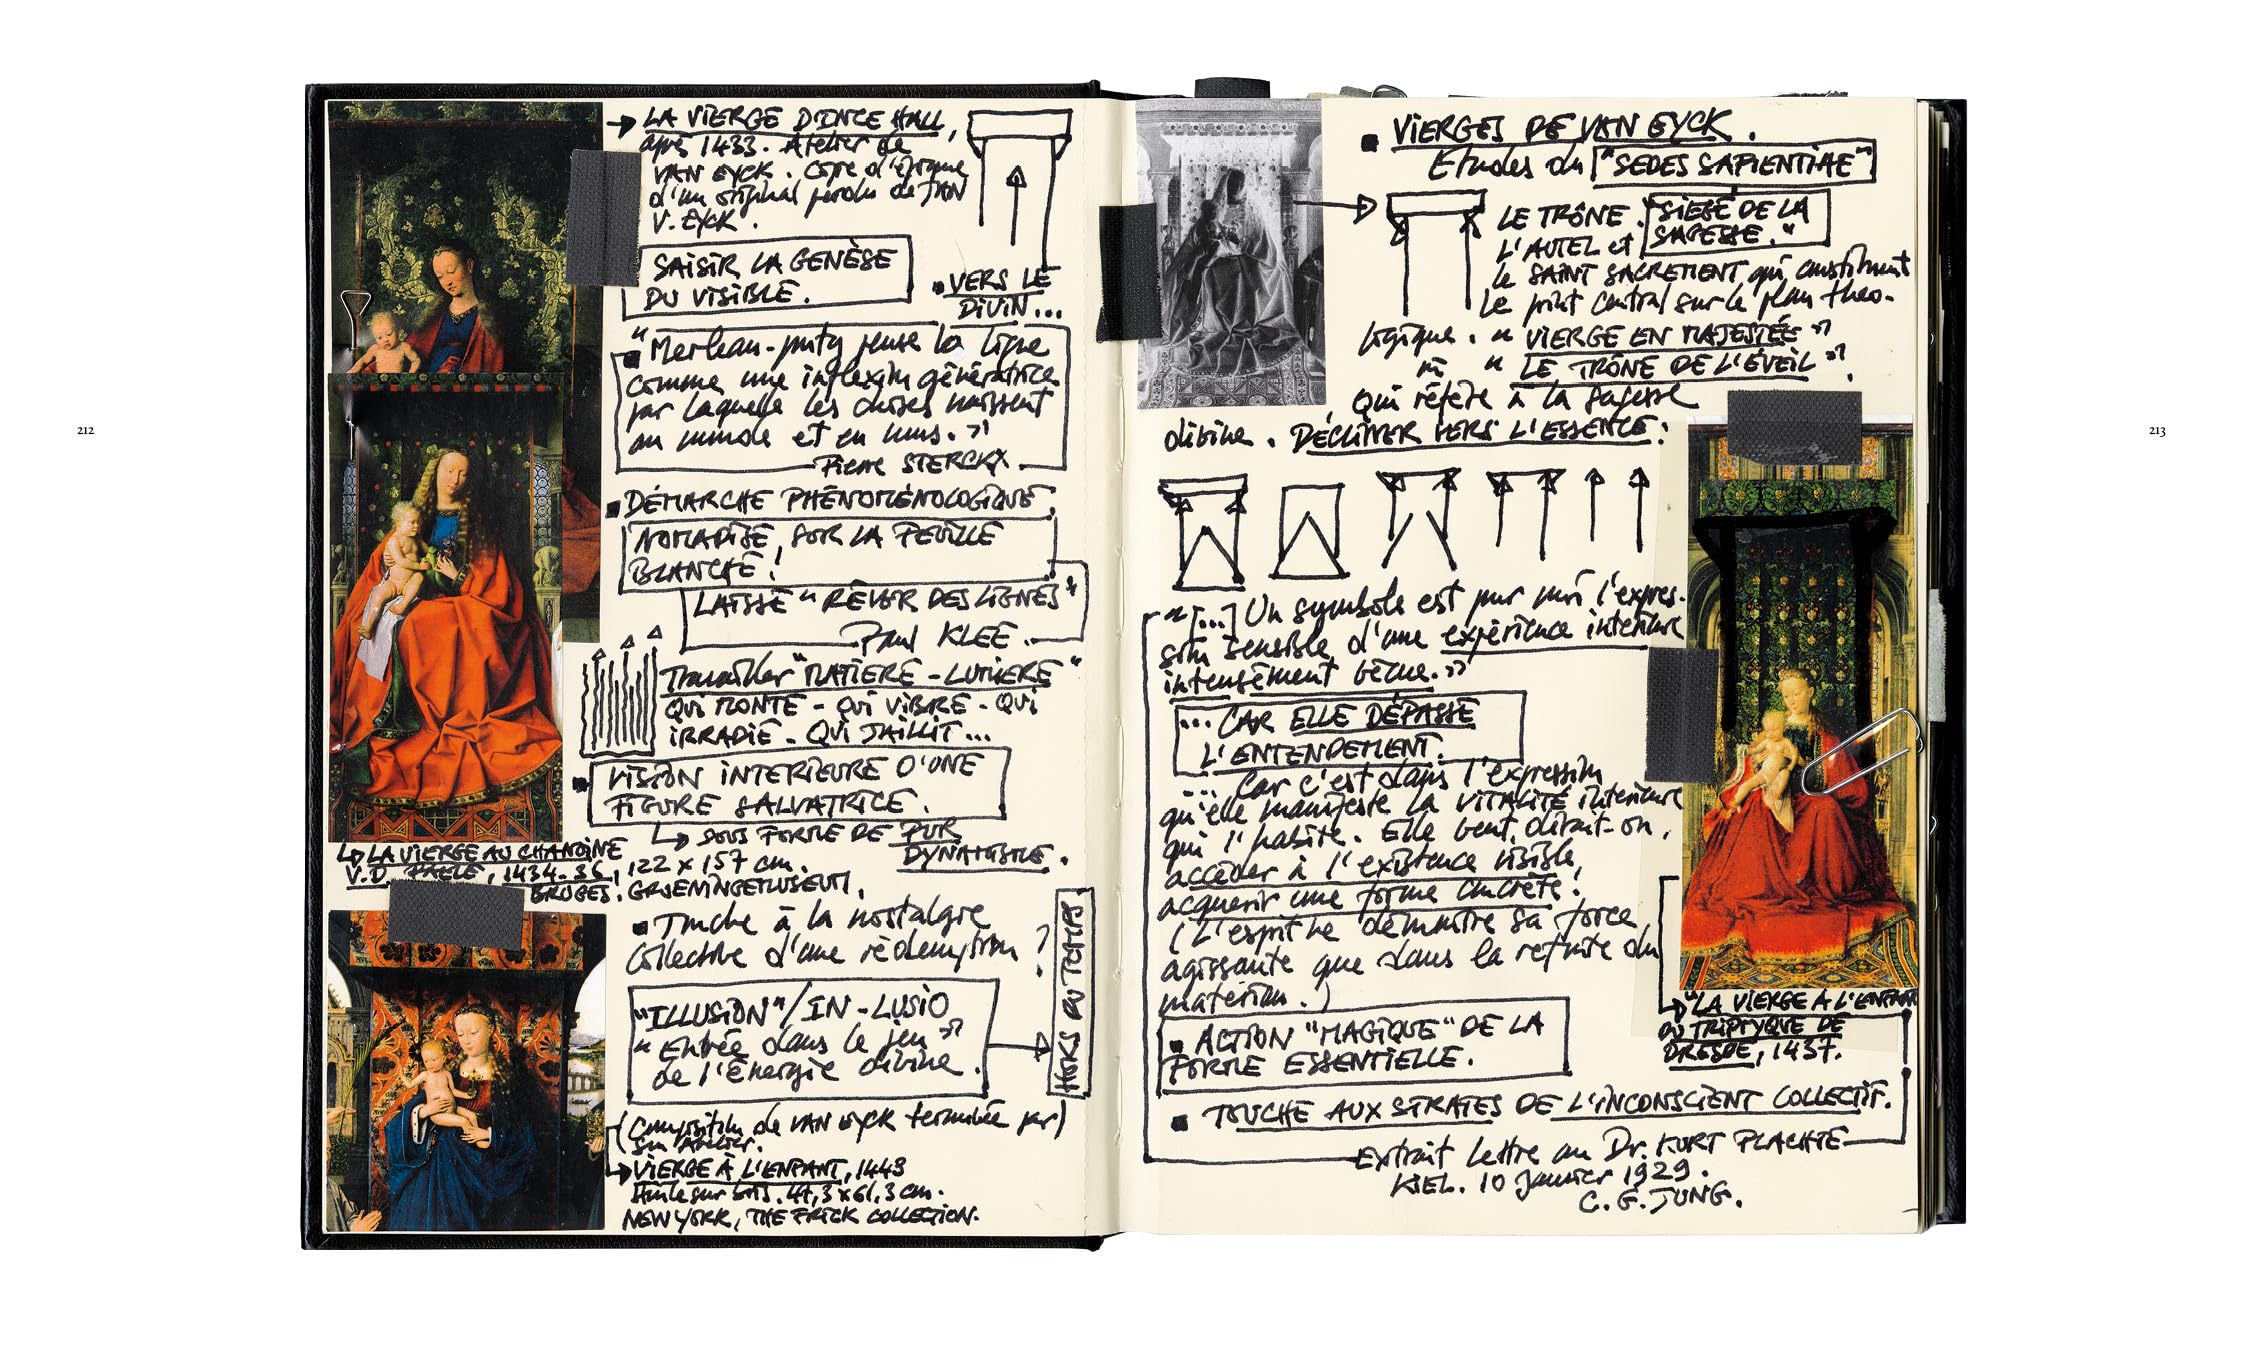 212
→ LA VIERGE D'INCE HALL,
après 1433. Atelier de
VAN EYCK. Copie d'époque
d'un original perdu de JAN
V. EYCK.
SAISIR LA GENÈSE
DU VISIBLE.
VERS LE
DIVIN...
"Merleau-ponty pense la ligne
comme une inflexion génératrice
par laquelle les choses naissent
au monde et en nous."
Pierre STERCKX.
DÉMARCHE PHÉNOMÉNOLOGIQUE.
NOMADISE, SUR LA FEUILLE
BLANCHE!
LAISSE "RÊVER DES LIGNES"
Paul KLEE.
Travailler "MATIÈRE-LUMIÈRE"
QUI MONTE - QUI VIBRE - QUI
IRRADIE - QUI JAILLIT...
VISION INTERIEURE D'UNE
FIGURE SALVATRICE.
↳ SOUS FORME DE PUR
DYNAMISME.
↳ LA VIERGE AU CHANOINE
V.D. PAELE, 1434-36, 122 x 157 cm.
BRUGES. GROENINGEMUSEUM.
Touche à la nostalgie
collective d'une rédemption ?
"ILLUSION"/IN-LUSIO
"Entrée dans le jeu"
de l'énergie divine.
HORS DU TEMPS
(Composition de VAN EYCK terminée par)
son atelier.
↳ VIERGE À L'ENFANT, 1443
Huile sur bois. 47,3 x 61,3 cm.
NEW YORK, THE FRICK COLLECTION.
VIERGES DE VAN EYCK.
Etudes du "SEDES SAPIENTIAE"
LE TRÔNE. "SIEGE DE LA
L'AUTEL et SAGESSE."
le SAINT SACREMENT qui constituent
le point central sur le plan théo-
logique. "VIERGE EN MAJESTÉE"
"LE TRÔNE DE L'ÉVEIL".
qui réfère à la sagesse
divine. DÉCLINER VERS L'ESSENCE:
"[...] Un symbole est pour moi l'expres-
sion sensible d'une expérience intérieure
intensément vécue."
... CAR ELLE DÉPASSE
L'ENTENDEMENT.
... Car c'est dans l'expression
qu'elle manifeste la VITALITÉ intérieure
qui l'habite. Elle veut, dirait-on,
accéder à l'existence visible,
acquérir une forme concrète!
(L'esprit ne démontre sa force
agissante que dans la refonte du
matériau.)
ACTION "MAGIQUE" DE LA
FORME ESSENTIELLE.
"LA VIERGE A L'ENFANT
DU TRIPTYQUE DE
DRESDE, 1437.
TOUCHE AUX STRATES DE L'INCONSCIENT COLLECTIF.
Extrait lettre au Dr. KURT PLACHTE
KIEL. 10 Janvier 1929.
C. G. JUNG.
213